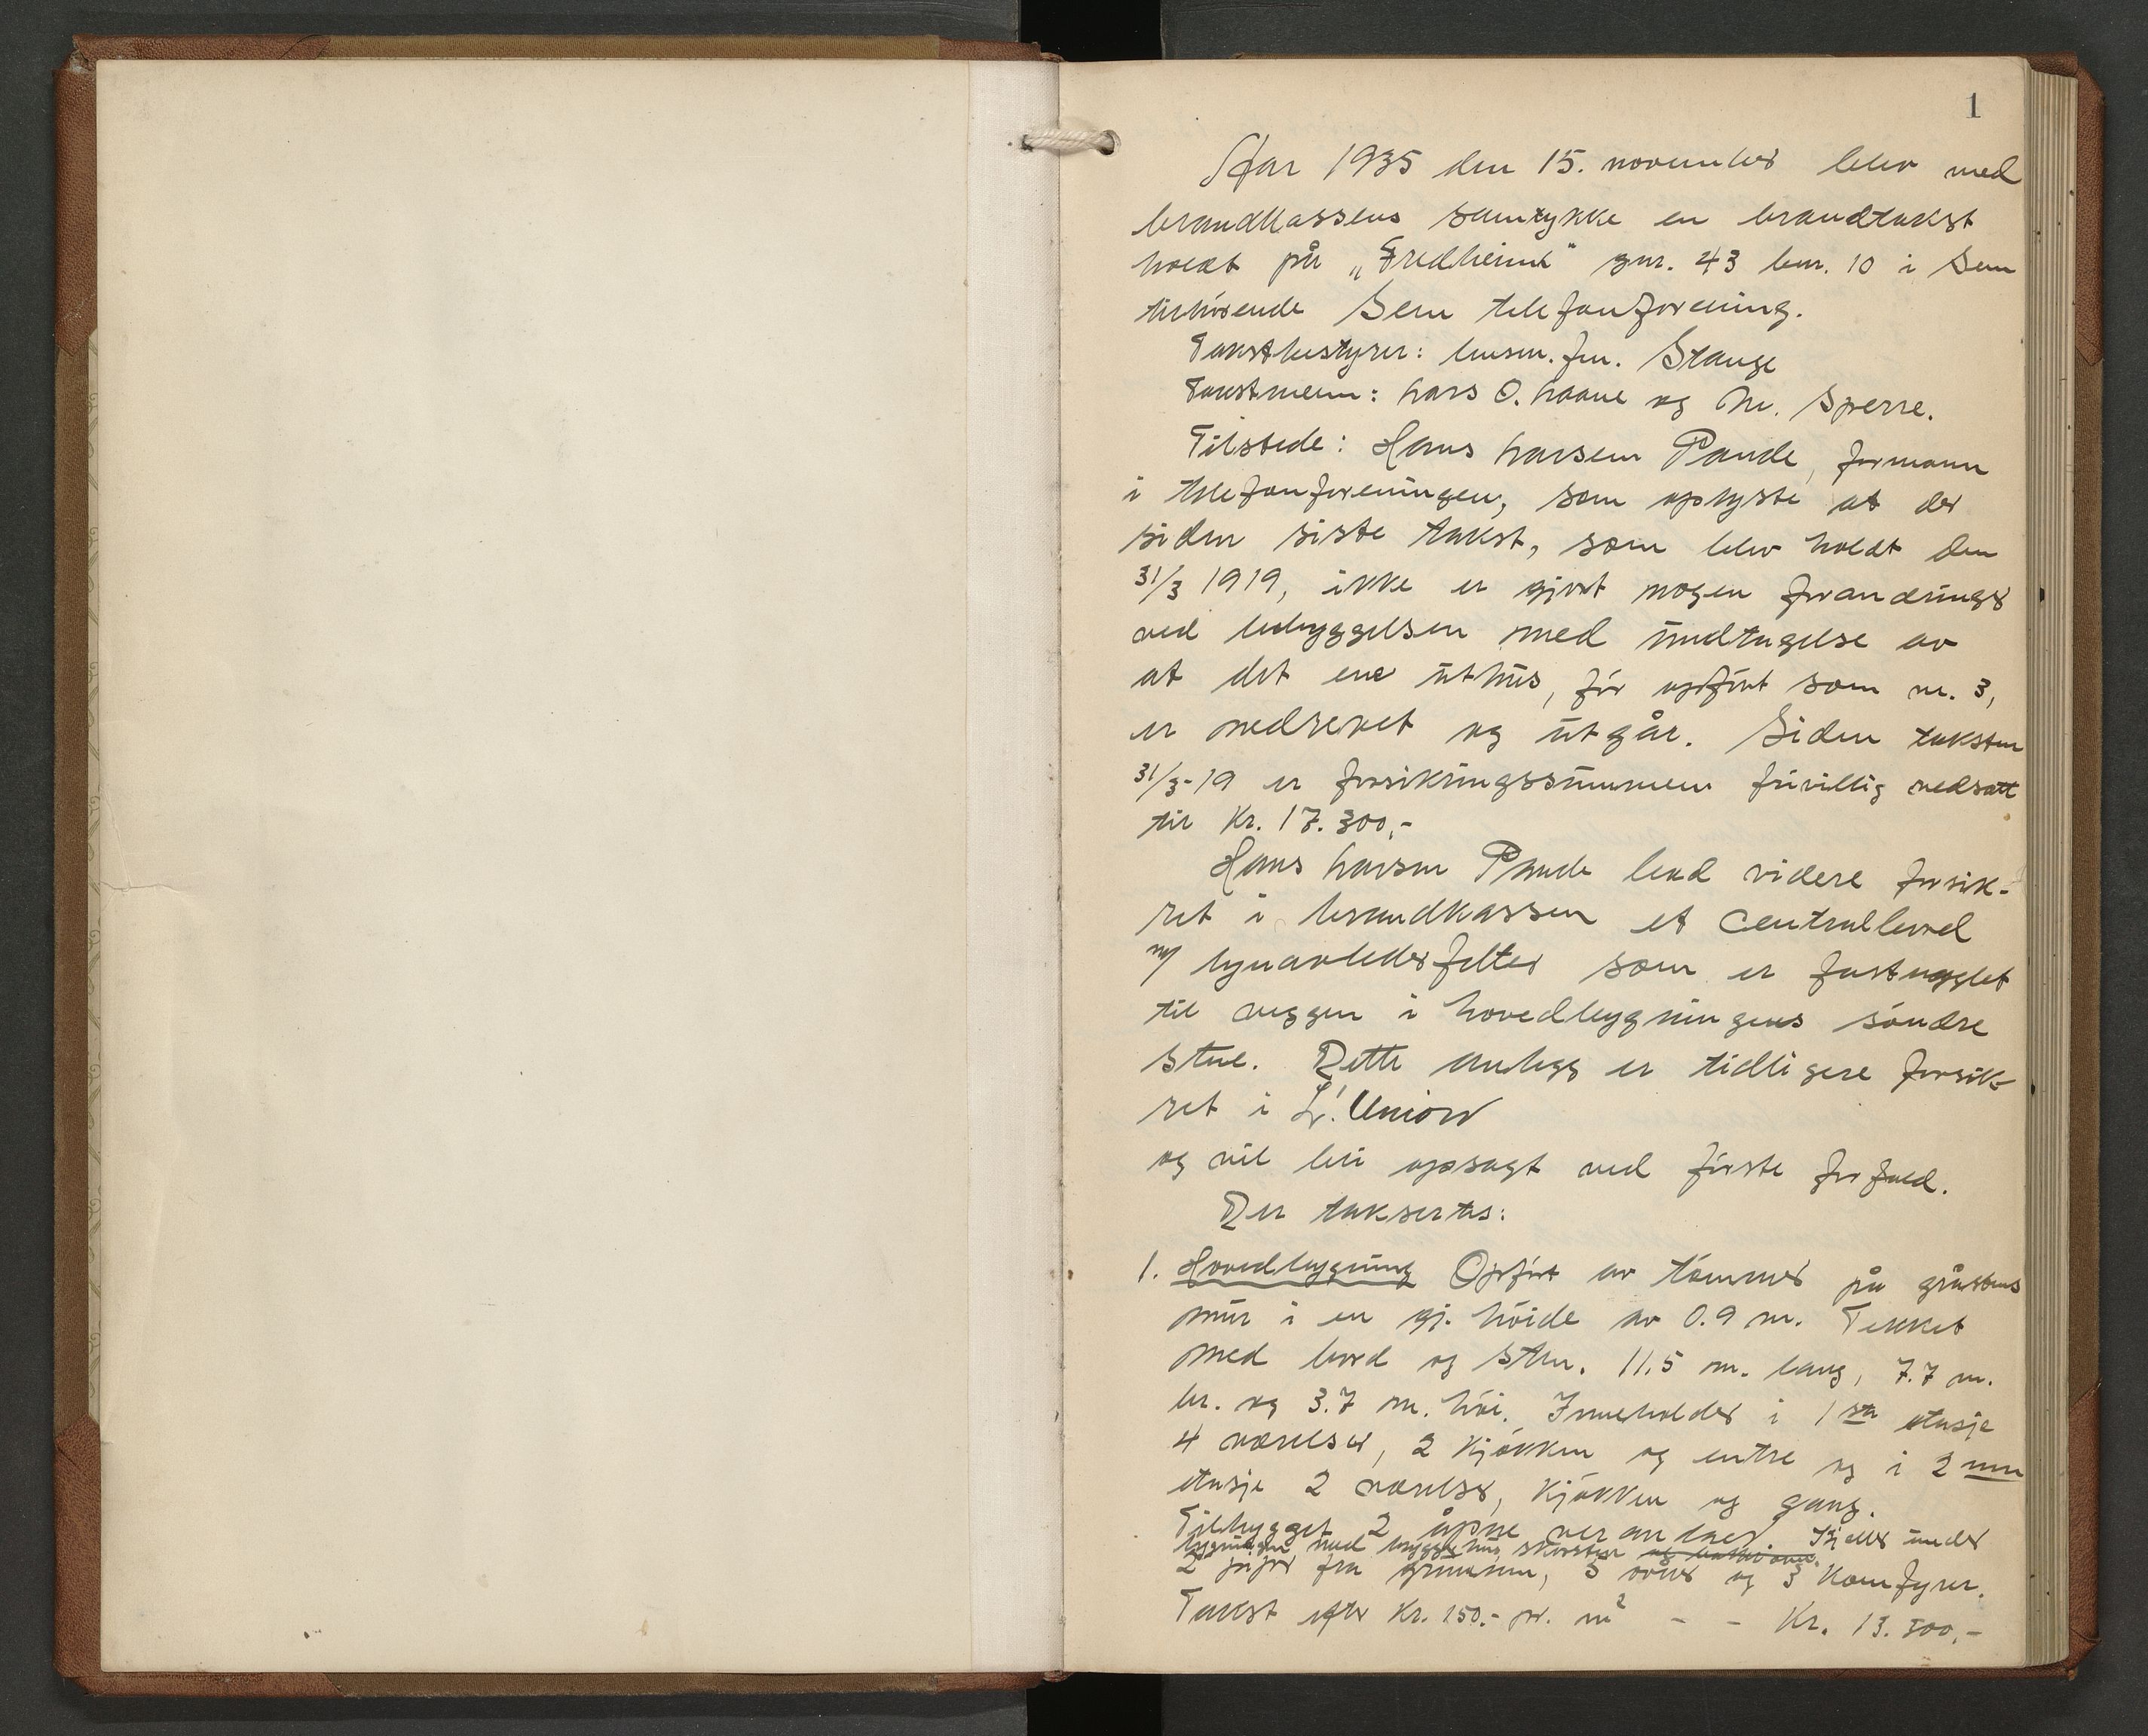 1
Aar 1935 den 15. november blev med
brandkassens samtykke en brandtakst
holdt på „Fredheim" gnr. 43 bnr. 10 i Sem
tilhörende Sem telefonforening.
Takstbestyrer: lensm. fm. Stange
Takstmenn: Lars O. Haane og M. Sperre.
Tilstede: Hans Larsen Pande, formann
i telefonforeningen, som oplyste at der
siden siste takst, som blev holdt den
31/3 1919, ikke er gjort nogen forandringer
ved bebyggelsen med undtagelse av
at det ene uthus, för opfört som nr. 3,
er nedrevet og utgår. Siden taksten
31/3-19 er forsikringssummen frivillig nedsatt
til Kr. 17.300,-
Hans Larsen Pande bad videre forsik-
ret i brandkassen et Centralbord
m/ lynavlederfelter som er fastnaglet
til veggen i hovedbygningens söndre
stue. Dette anlegg er tidligere forsik-
ret i L'Union
og vil bli opsagt ved förste forfald.
Der taksertes:
1. Hovedbygning Opfört av tömmer på gråstens
mur i en gj. höide av 0.9 m. Tekket
med bord og sten. 11,5 m. lang, 7.7 m.
br. og 3.7 m. höi. Inneholder i 1ste etasje
4 værelser, 2 kjökken og entre og i 2nen
etasje 2 værelser, kjökken og gang.
Tilbygget 2 åpne verandaer. Kjeller under
bygningen med bryggehus, skorsten og
2 piper fra grunnen, 5 ovner og 3 komfyrer.
Takst efter Kr. 150.- pr. m² - - Kr. 13.300,-